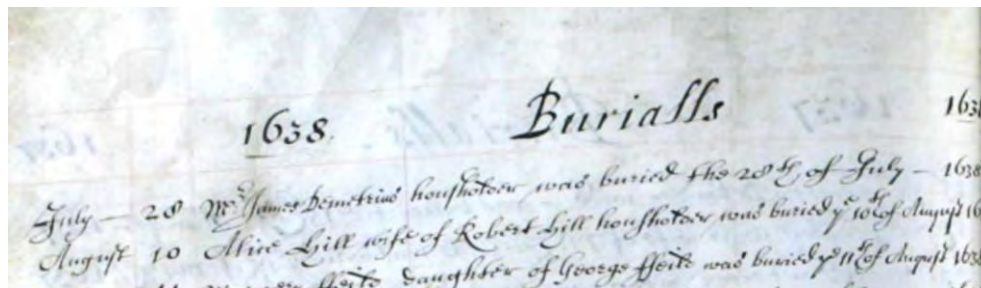 1638. Burialls 163
July — 28 Mr James Demetrius houshoLder was buried the 28th of July — 1638
August 10 Alice Hill wife of Robert Hill housholder was buried ye 10th of August 16
daughter of George ffeild was buried ye 11th of August 163